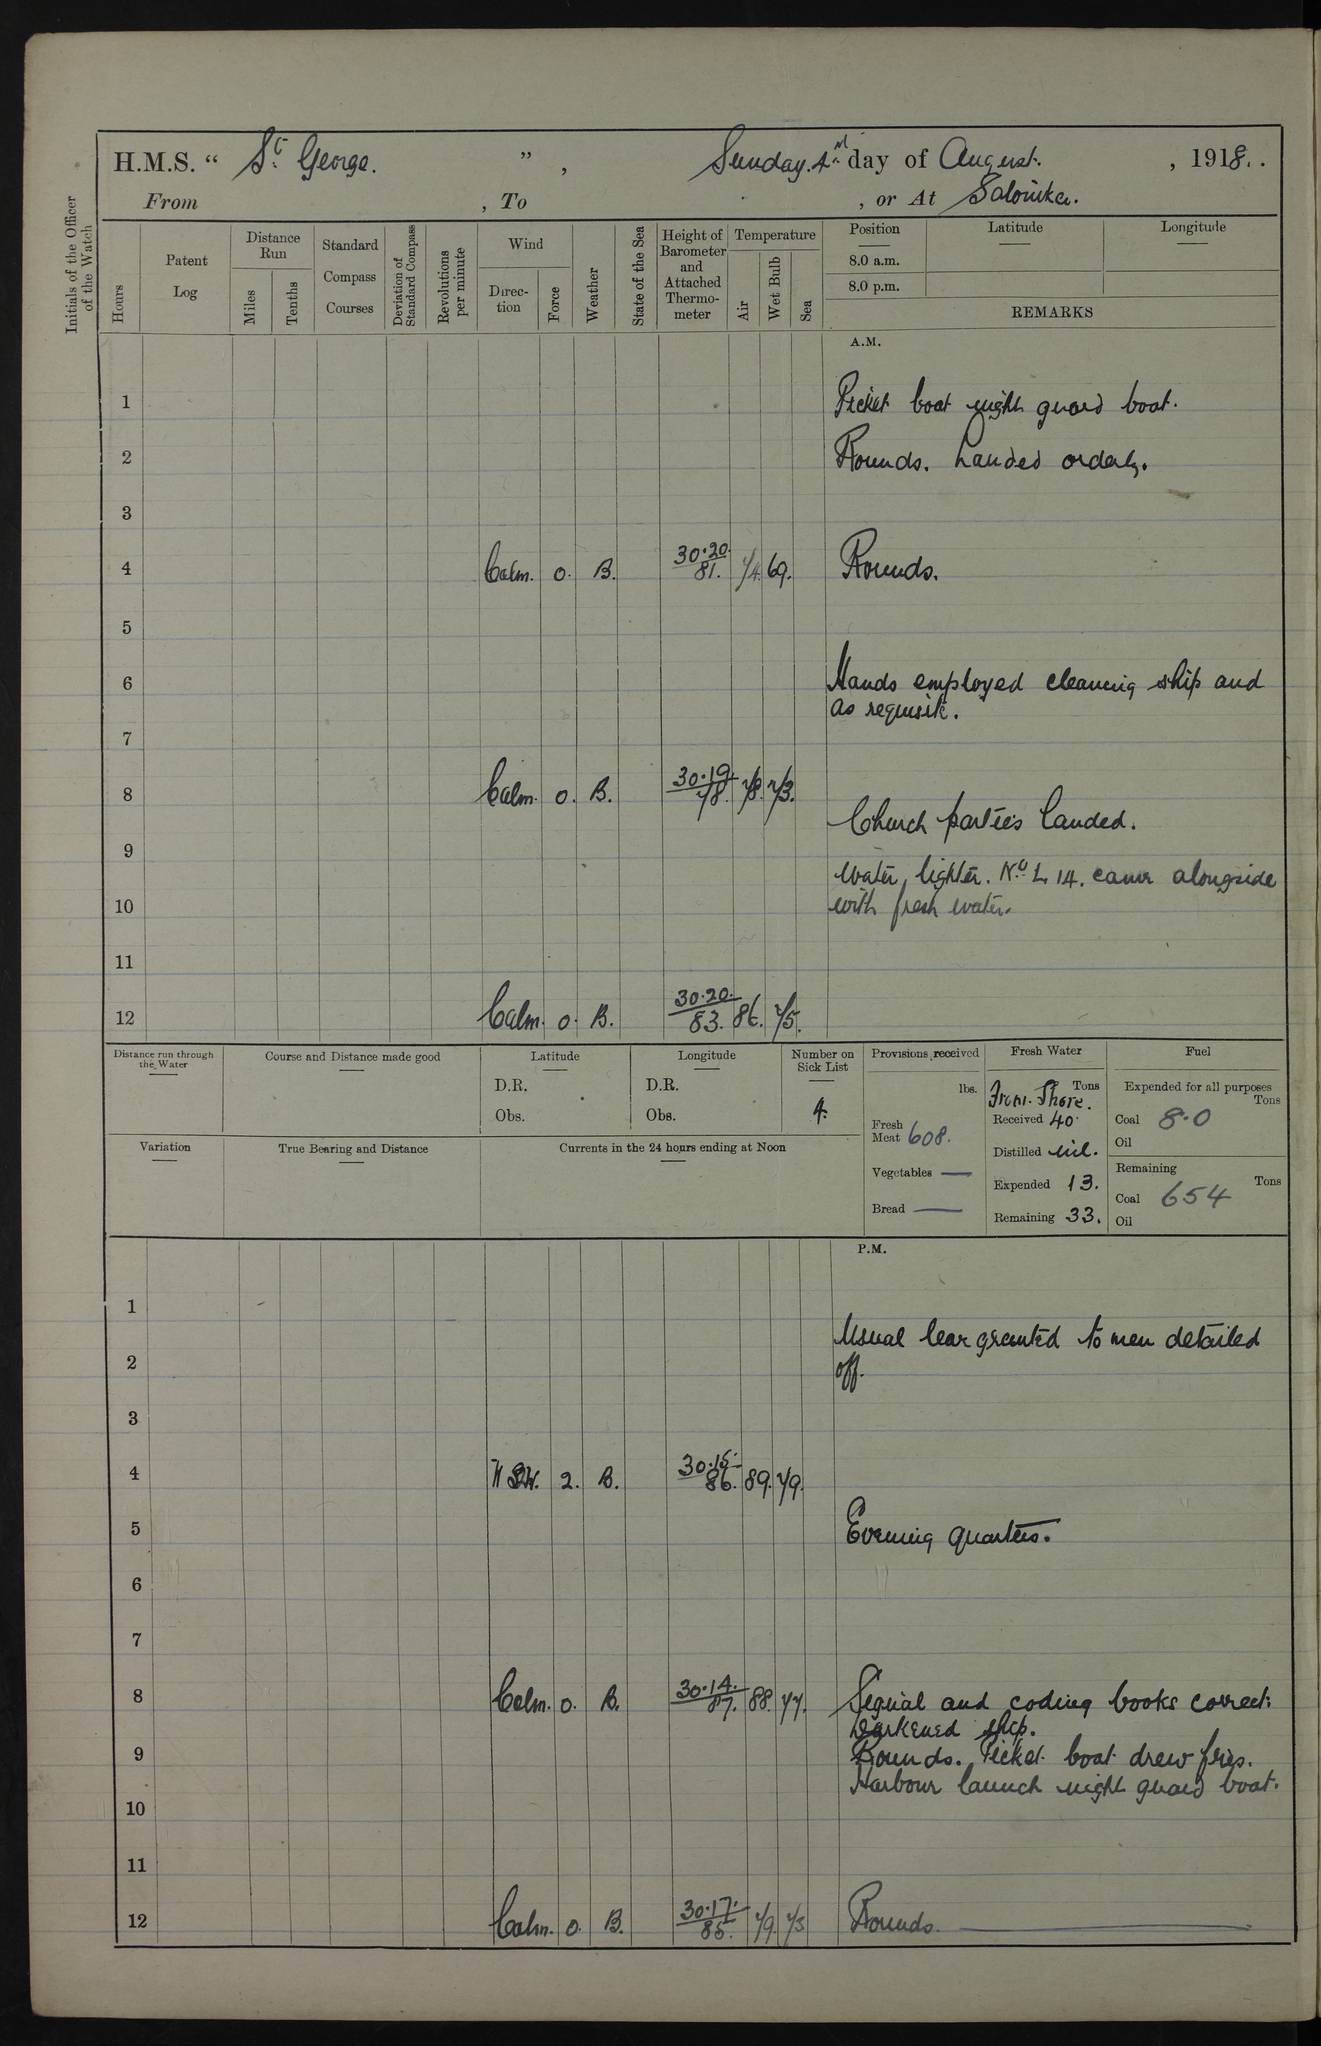 H.M.S. “ St George. ” , Sunday. 4th day of August. , 1918..
From , To , or At Salonika.
Initials of the Officer of the Watch
Hours
Patent Log
Distance Run
Miles
Tenths
Standard Compass Courses
Deviation of Standard Compass
Revolutions per minute
Wind
Direc-tion
Force
Weather
State of the Sea
Height of Barometer and Attached Thermo-meter
Temperature
Air
Wet Bulb
Sea
Position
Latitude
Longitude
8.0 a.m.
8.0 p.m.
REMARKS
A.M.
1 Picket boat night guard boat.
2 Rounds. Landed orderly.
3
4 Calm. 0. B. 30.20. 81. 74. 69. Rounds.
5
6 Hands employed cleaning ship and
as requisite.
7
8 Calm. 0. B. 30.19. 78. 78. 73.
Church parties landed.
9
Water lighter. No. L 14. came alongside
10 with fresh water.
11
12 Calm. 0. B. 30.20. 83. 86. 75.
Distance run through the Water
Course and Distance made good
Latitude
D.R.
Obs.
Longitude
D.R.
Obs.
Number on Sick List
4.
Variation
True Bearing and Distance
Currents in the 24 hours ending at Noon
Provisions received
lbs.
Fresh Meat 608.
Vegetables —
Bread —
Fresh Water
Tons
From. Shore.
Received 40.
Distilled nil.
Expended 13.
Remaining 33.
Fuel
Expended for all purposes
Tons
Coal 8.0
Oil
Remaining
Tons
Coal 654
Oil
P.M.
1
Usual leave granted to men detailed
2 off.
3
4 WSW. 2. B. 30.15. 86. 89. 79.
5 Evening quarters.
6
7
8 Calm. 0. B. 30.14. 87. 88. 77. Signal and coding books correct.
Darkened ship.
9 Rounds. Picket boat drew fires.
Harbour launch night guard boat.
10
11
12 Calm. 0. B. 30.17. 85. 79. 75 Rounds.